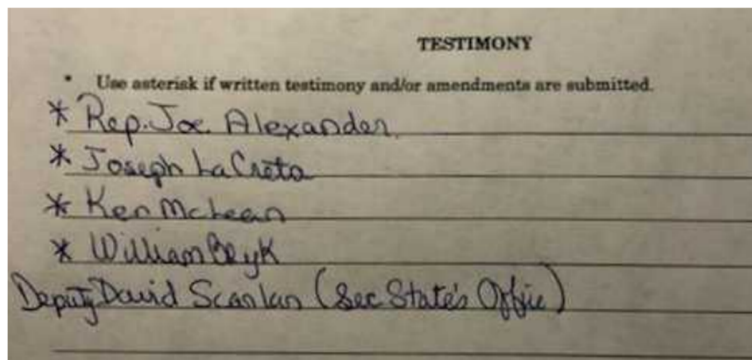 TESTIMONY
* Use asterisk if written testimony and/or amendments are submitted.
* Rep. Joe Alexander
* Joseph LaCreta
* Ken McLean
* William Bryk
Deputy David Scanlan (Sec State's Office)